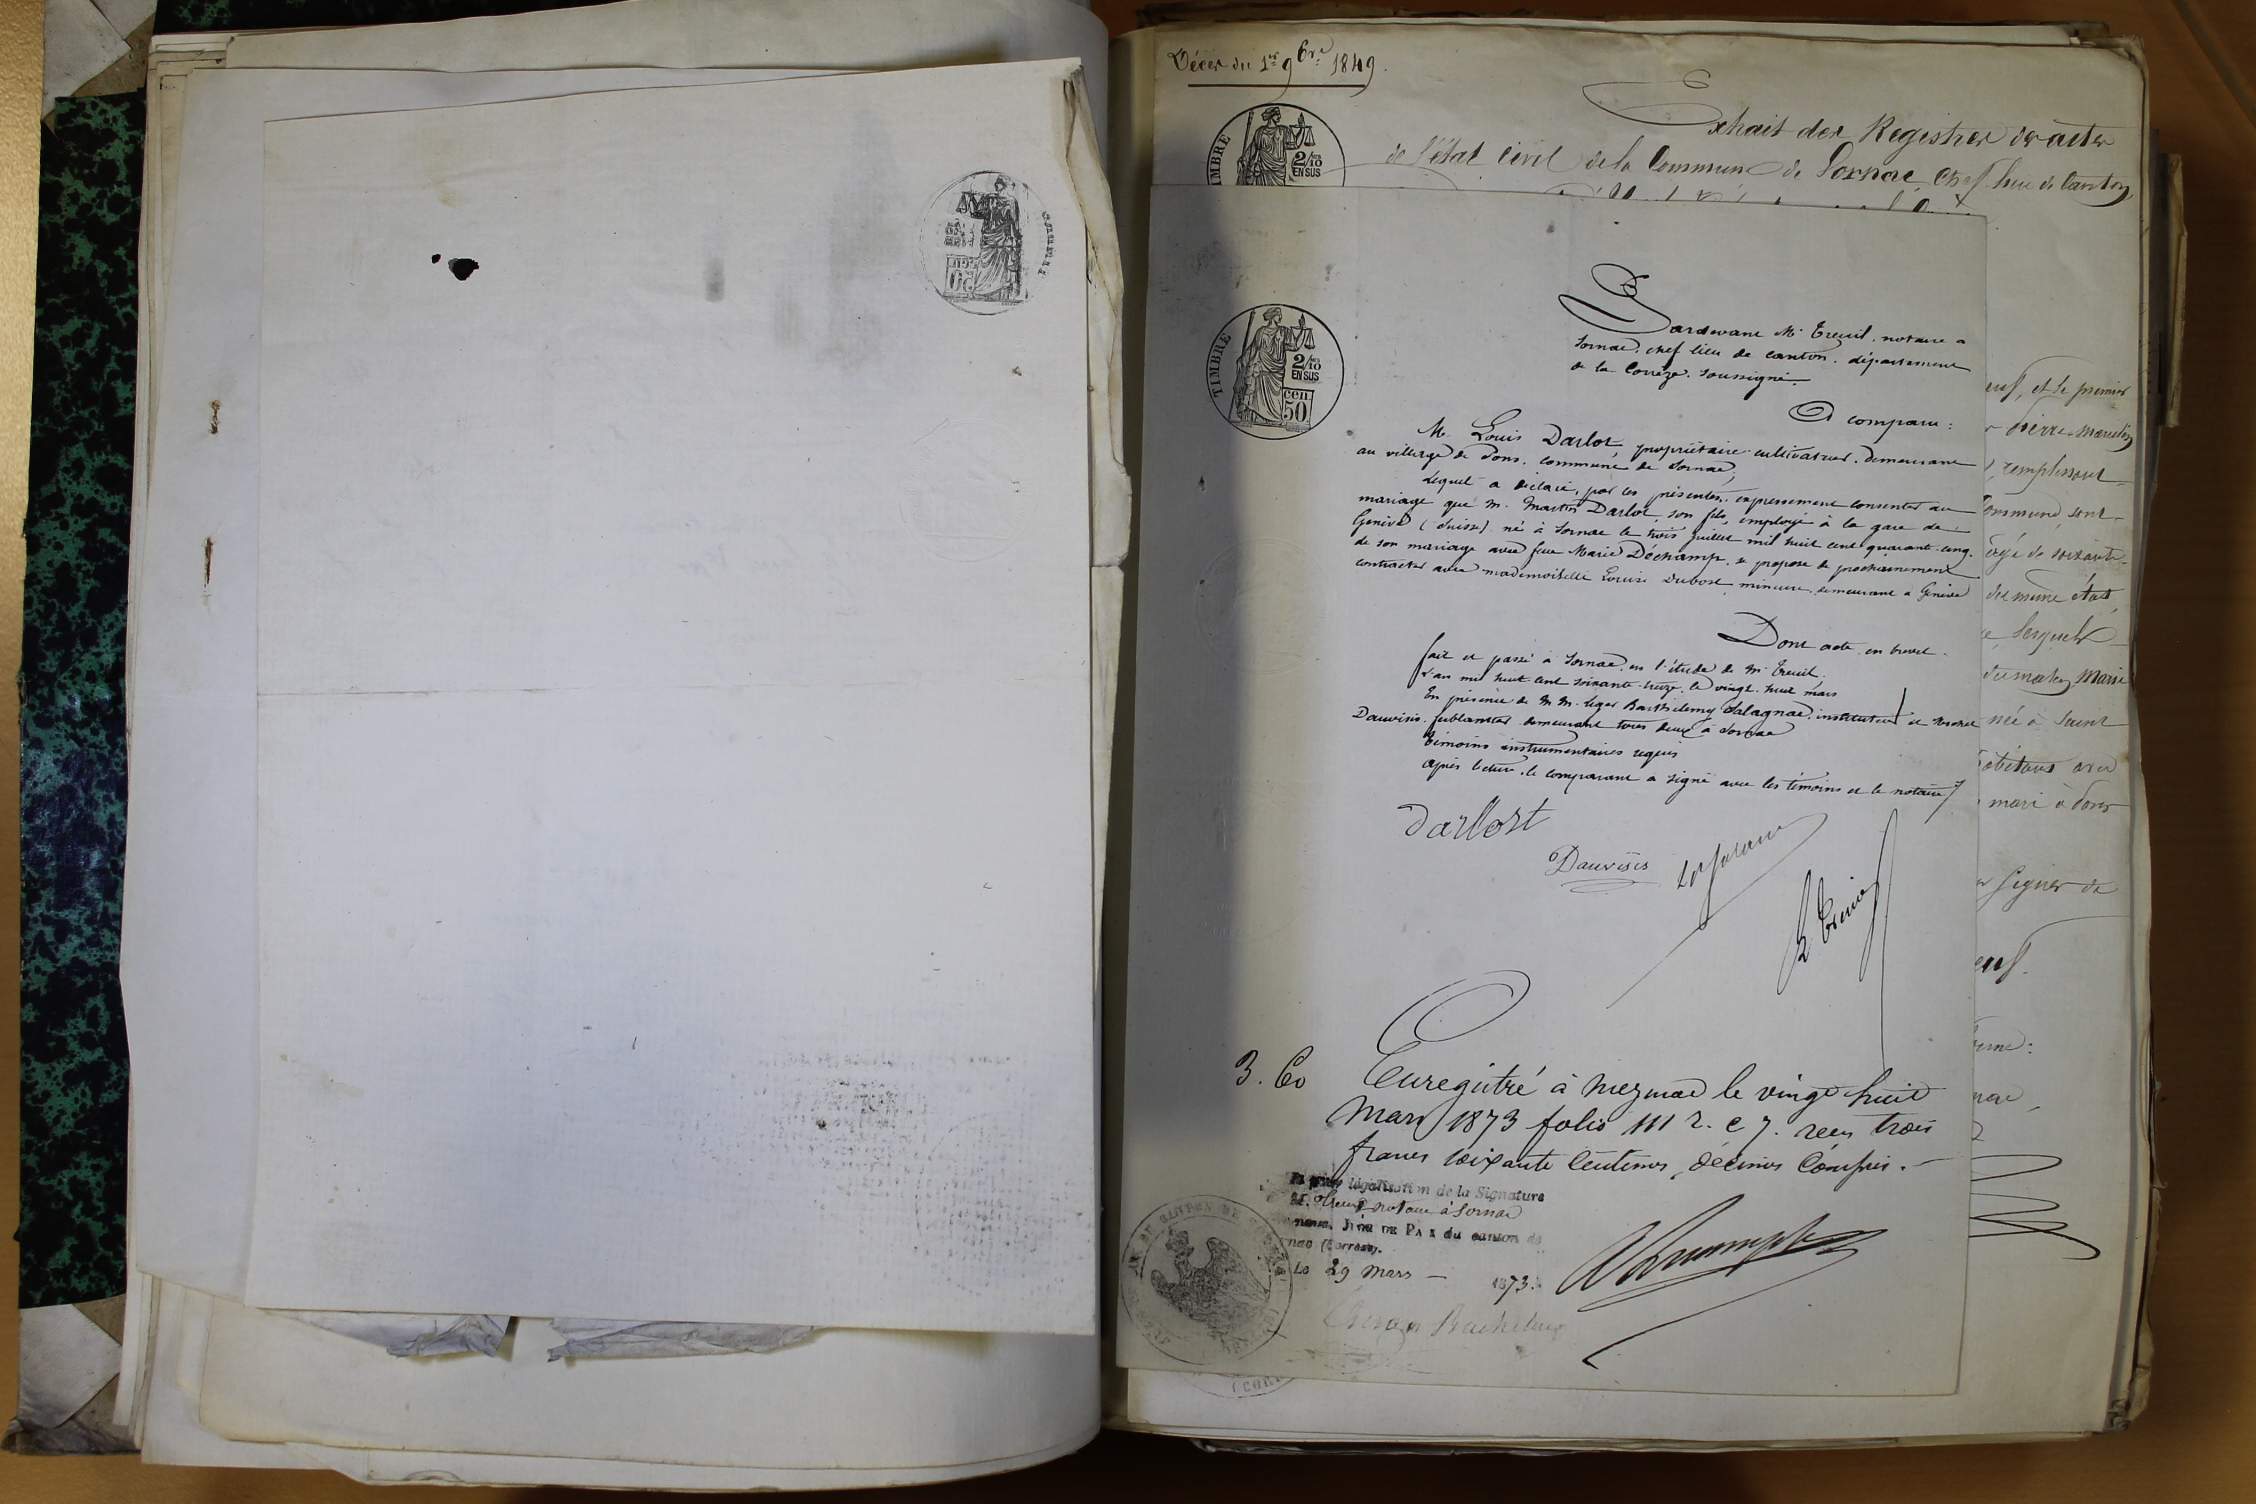 Décès du 1er 9bre 1849.
Extrait des Registres des actes
de l'état civil de la Commune de Sornac, chef lieu de Canton,
TIMBRE
2/10
EN SUS
Pardevant Me Treuil, notaire a
Sornac, chef lieu de canton, département
de la Corrèze, soussigné.
A comparu :
M. Louis Darlot, propriétaire cultivateur, demeurant
au village de Dons, commune de Sornac,
lequel a déclaré, par les présentes, expressement consentir au
mariage que M. Martin Darlot, son fils, employé à la gare de
Genève (Suisse), né à Sornac le trois juillet mil huit cent quarante-cinq,
de son mariage avec feue Marie Dechamp, se propose de prochainement
contracter avec mademoiselle Louise Dubost, mineure, demeurant a Genève
Dont acte, en brevet.
fait et passé à Sornac, en l'étude de Me Treuil.
L'an mil huit cent soixante-treize, le vingt-huit mars
En présence de MM. Leger Barthelemy Salagnac, instituteur et
Dauvisis, ferblantier demeurant tous deux à Sornac
témoins instrumentaires requis
Après lecture, le comparant a signé avec les témoins et le notaire
TIMBRE
2/10
EN SUS
cen.
50
Darlost
Dauvisis
Treuil
3. 60
Enregistré à Meymac le vingt huit
Mars 1873 folio 111 r. c 7. reçu trois
francs soixante centimes, décimes compris.
légalisation de la Signature
M. Treuil notaire à Sornac
JUGE DE PAIX du canton de
(Corrèze).
Le 29 Mars 1873.
euf, et le premier
Pierre Marcelin
remplissant
Commune, sont
âgé de soixante
du même état
lesquels
du matin, Marie
née à Saint
mari à Dons
signer de